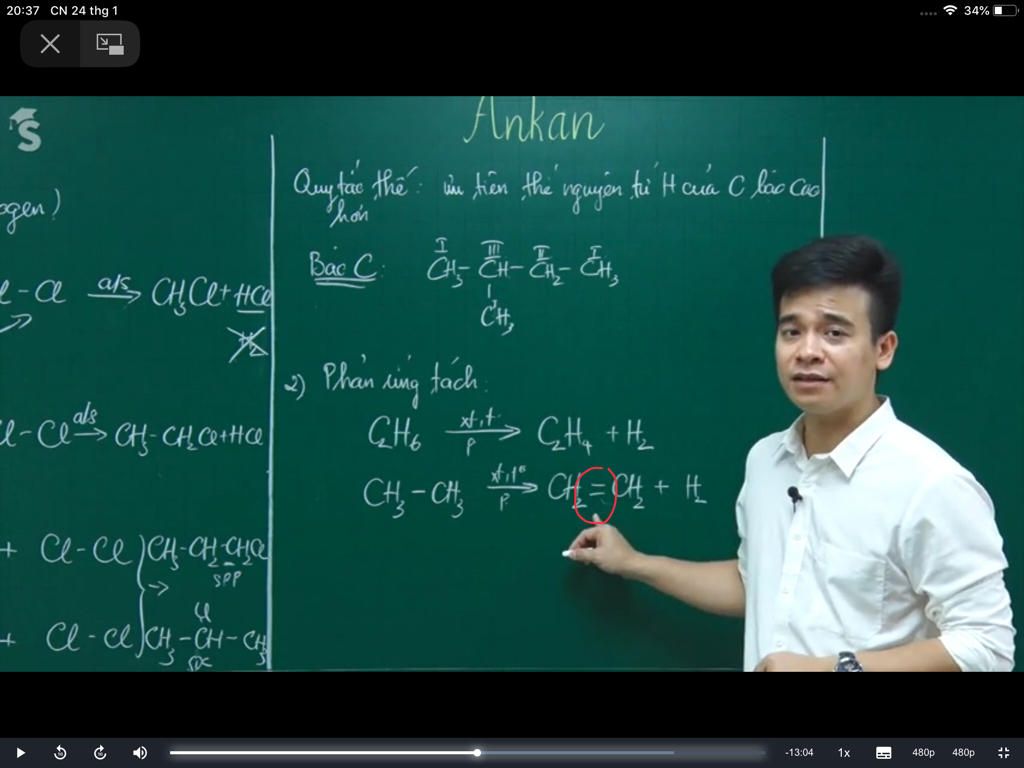 20:37 CN 24 thg 1
34%
S
Ankan
ogen)
l - Cl as→ CH3Cl + HCl
l - Cl as→ CH3-CH2Cl + HCl
+ Cl - Cl CH3-CH2-CH2Cl
SPP
+ Cl - Cl → Cl
CH3-CH-CH3
SPC
Quy tắc thế: ưu tiên thế nguyên tử H của C bậc cao
hơn
Bậc C: I III II I
CH3-CH-CH2-CH3
I
CH3
2) Phản ứng tách:
C2H6 xt,t° p→ C2H4 + H2
CH3-CH3 xt,t° p→ CH2=CH2 + H2
10 10 -13:04 1x 480p 480p